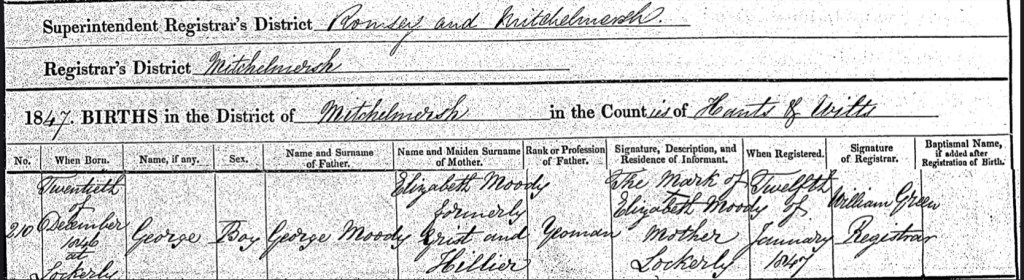 Superintendent Registrar's District Romsey and Mitchelmersh.
Registrar's District Mitchelmersh
1847. BIRTHS in the District of Mitchelmersh in the Counties of Hants & Wilts
No. When Born. Name, if any. Sex. Name and Surname of Father. Name and Maiden Surname of Mother. Rank or Profession of Father. Signature, Description, and Residence of Informant. When Registered. Signature of Registrar. Baptismal Name, if added after Registration of Birth.
210
Twentieth
of
December
1846
at
Lockerly
George
Boy
George Moody
Elizabeth Moody
formerly
Grist and
Hillier
Yeoman
The Mark of
Elizabeth Moody
Mother
Lockerly
Twelfth
of
January
1847
William Green
Registrar